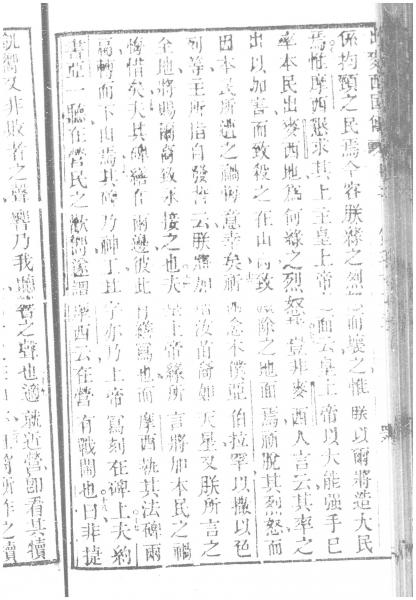 出麥西國傳
係拘頸之民焉今容朕緣之烈怒而喪之惟朕以爾將造大民
焉惟摩西懇求其上主皇上帝之面云皇上帝以大能强手已
率本民出麥西地爲何緣之烈怒焉豈非麥西人言云其率之
出以加害而致殺之在山而致滅除之地面焉祈脫其烈怒而
因本民所遇之禍悔意幸矣祈爾念本僕亞伯拉罕以撒以色
列等主所指自發誓云朕將加增汝苗裔如天星又朕所言之
全地將賜爾裔致永接之也夫皇上帝緣所言將加本民之禍
悔惜矣夫其碑繕在兩邊彼此有繕焉也而摩西執其法碑兩
扇轉而下山焉其碑乃神工其字亦乃上帝寫刻在碑上夫約
書亞一聽在營民之歡嚮遂謂摩西云在營有戰鬧也曰非捷
凱嚮又非敗者之聲響乃我聽唱之聲也適就近營即看其犢